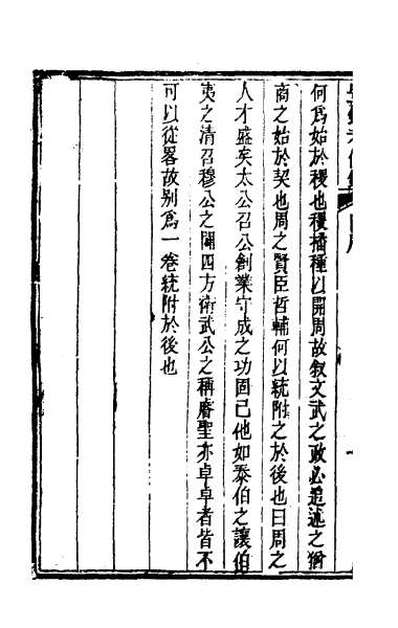 何爲始於稷也稷播種以開周故叙文武之政必追述之猶
商之始於契也周之賢臣哲輔何以統附之於後也曰周之
人才盛矣太公召公創業守成之功固已他如泰伯之讓伯
夷之清召穆公之闢四方衛武公之稱睿聖亦卓卓者皆不
可以從畧故别爲一卷統附於後也